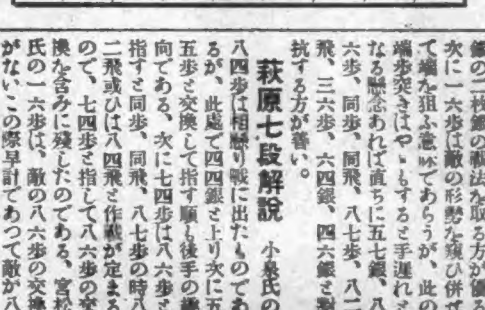 銀の二枚銀の戰法を取る方が優る
次に一六歩は敵の形勢を窺ひ併せ
て端を狙ふ意味であらうが、此の
端歩突きはやゝもすると手遲れと
なる懸念あれば直ちに五七銀、八
六歩、同歩、同飛、八七歩、八二
飛、三六歩、六四銀、四六銀と對
抗する方が善い。
萩原七段解說 小泉氏の
八四歩は相懸り戰に出たものであ
るが、此處で四四銀と上り次に五
五歩と交換して指す順も後手の
向である、次に七四歩は八六歩と
指すと同歩、同飛、八七歩の時八
二飛或ひは八四飛と作戰が定まる
ので、七四歩と指して八六歩の交
換を含みに殘したのである、宮松
氏の一六歩は、敵の八六歩の交換
がないこの際早計であつて敵が八